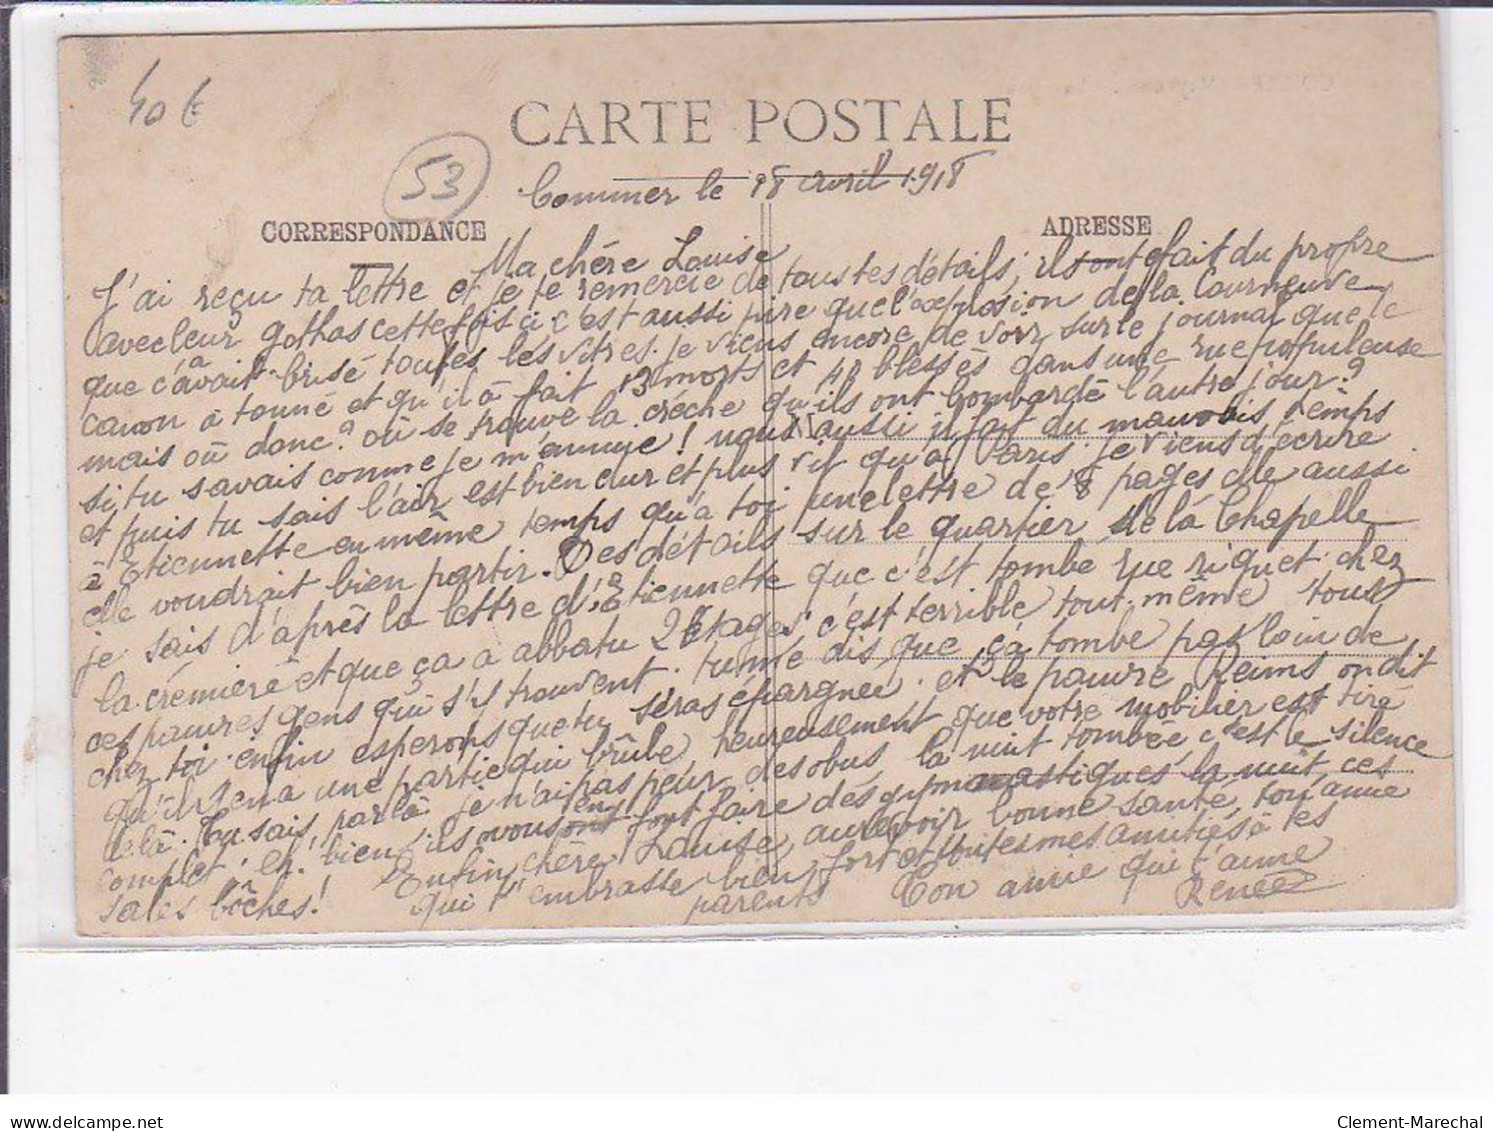 40 €
CARTE POSTALE
53
Commer le 18 avril 1918
CORRESPONDANCE
ADRESSE
Ma chère Louise
J'ai reçu ta lettre et je te remercie de tous tes détails ; ils ont fait du propre
avec leur gothas cette fois ci c'est aussi pire que l'explosion de la Courneuve
que ç'a avait brisé toutes les vitres. je viens encore de voir sur le journal que le
canon à tonné et qu'il à fait 13 morts et 40 blessés dans une rue populeuse
mais où donc ? où se trouve la crèche qu'ils ont bombardé l'autre jour ?
si tu savais comme je m'ennuye ! nous aussi il fait du mauvais temps
et puis tu sais l'air est bien dur et plus vif qu'à Paris. je viens d'écrire
à Etiennette en même temps qu'à toi une lettre de 8 pages elle aussi
elle voudrait bien partir. Des détails sur le quartier de la Chapelle
je sais d'après la lettre d'Etiennette que c'est tombe rue riquet chez
la crémière et que ça a abbatu 2 étages c'est terrible tout même tous
ces pauvres gens qui s'y trouvent. tu me dis que ça tombe pas loin de
chez toi enfin esperons que tu seras épargnée. et le pauvre Reims on dit
qu'il y en a une partie qui brûle, heureusement que votre mobilier est tiré
de là. Tu sais, par là je n'ai pas peur des obus la nuit tombée c'est le silence
complet ; eh ! bien, ils vous en font faire des gymnastiques la nuit, ces
sales bôches ! Enfin chère Louise, au revoir bonne santé, ton amie
qui t'embrasse bien fort et toutes mes amitiés à tes
parents Ton amie qui t'aime
Renée
Clement-Marechal
www.delcampe.net